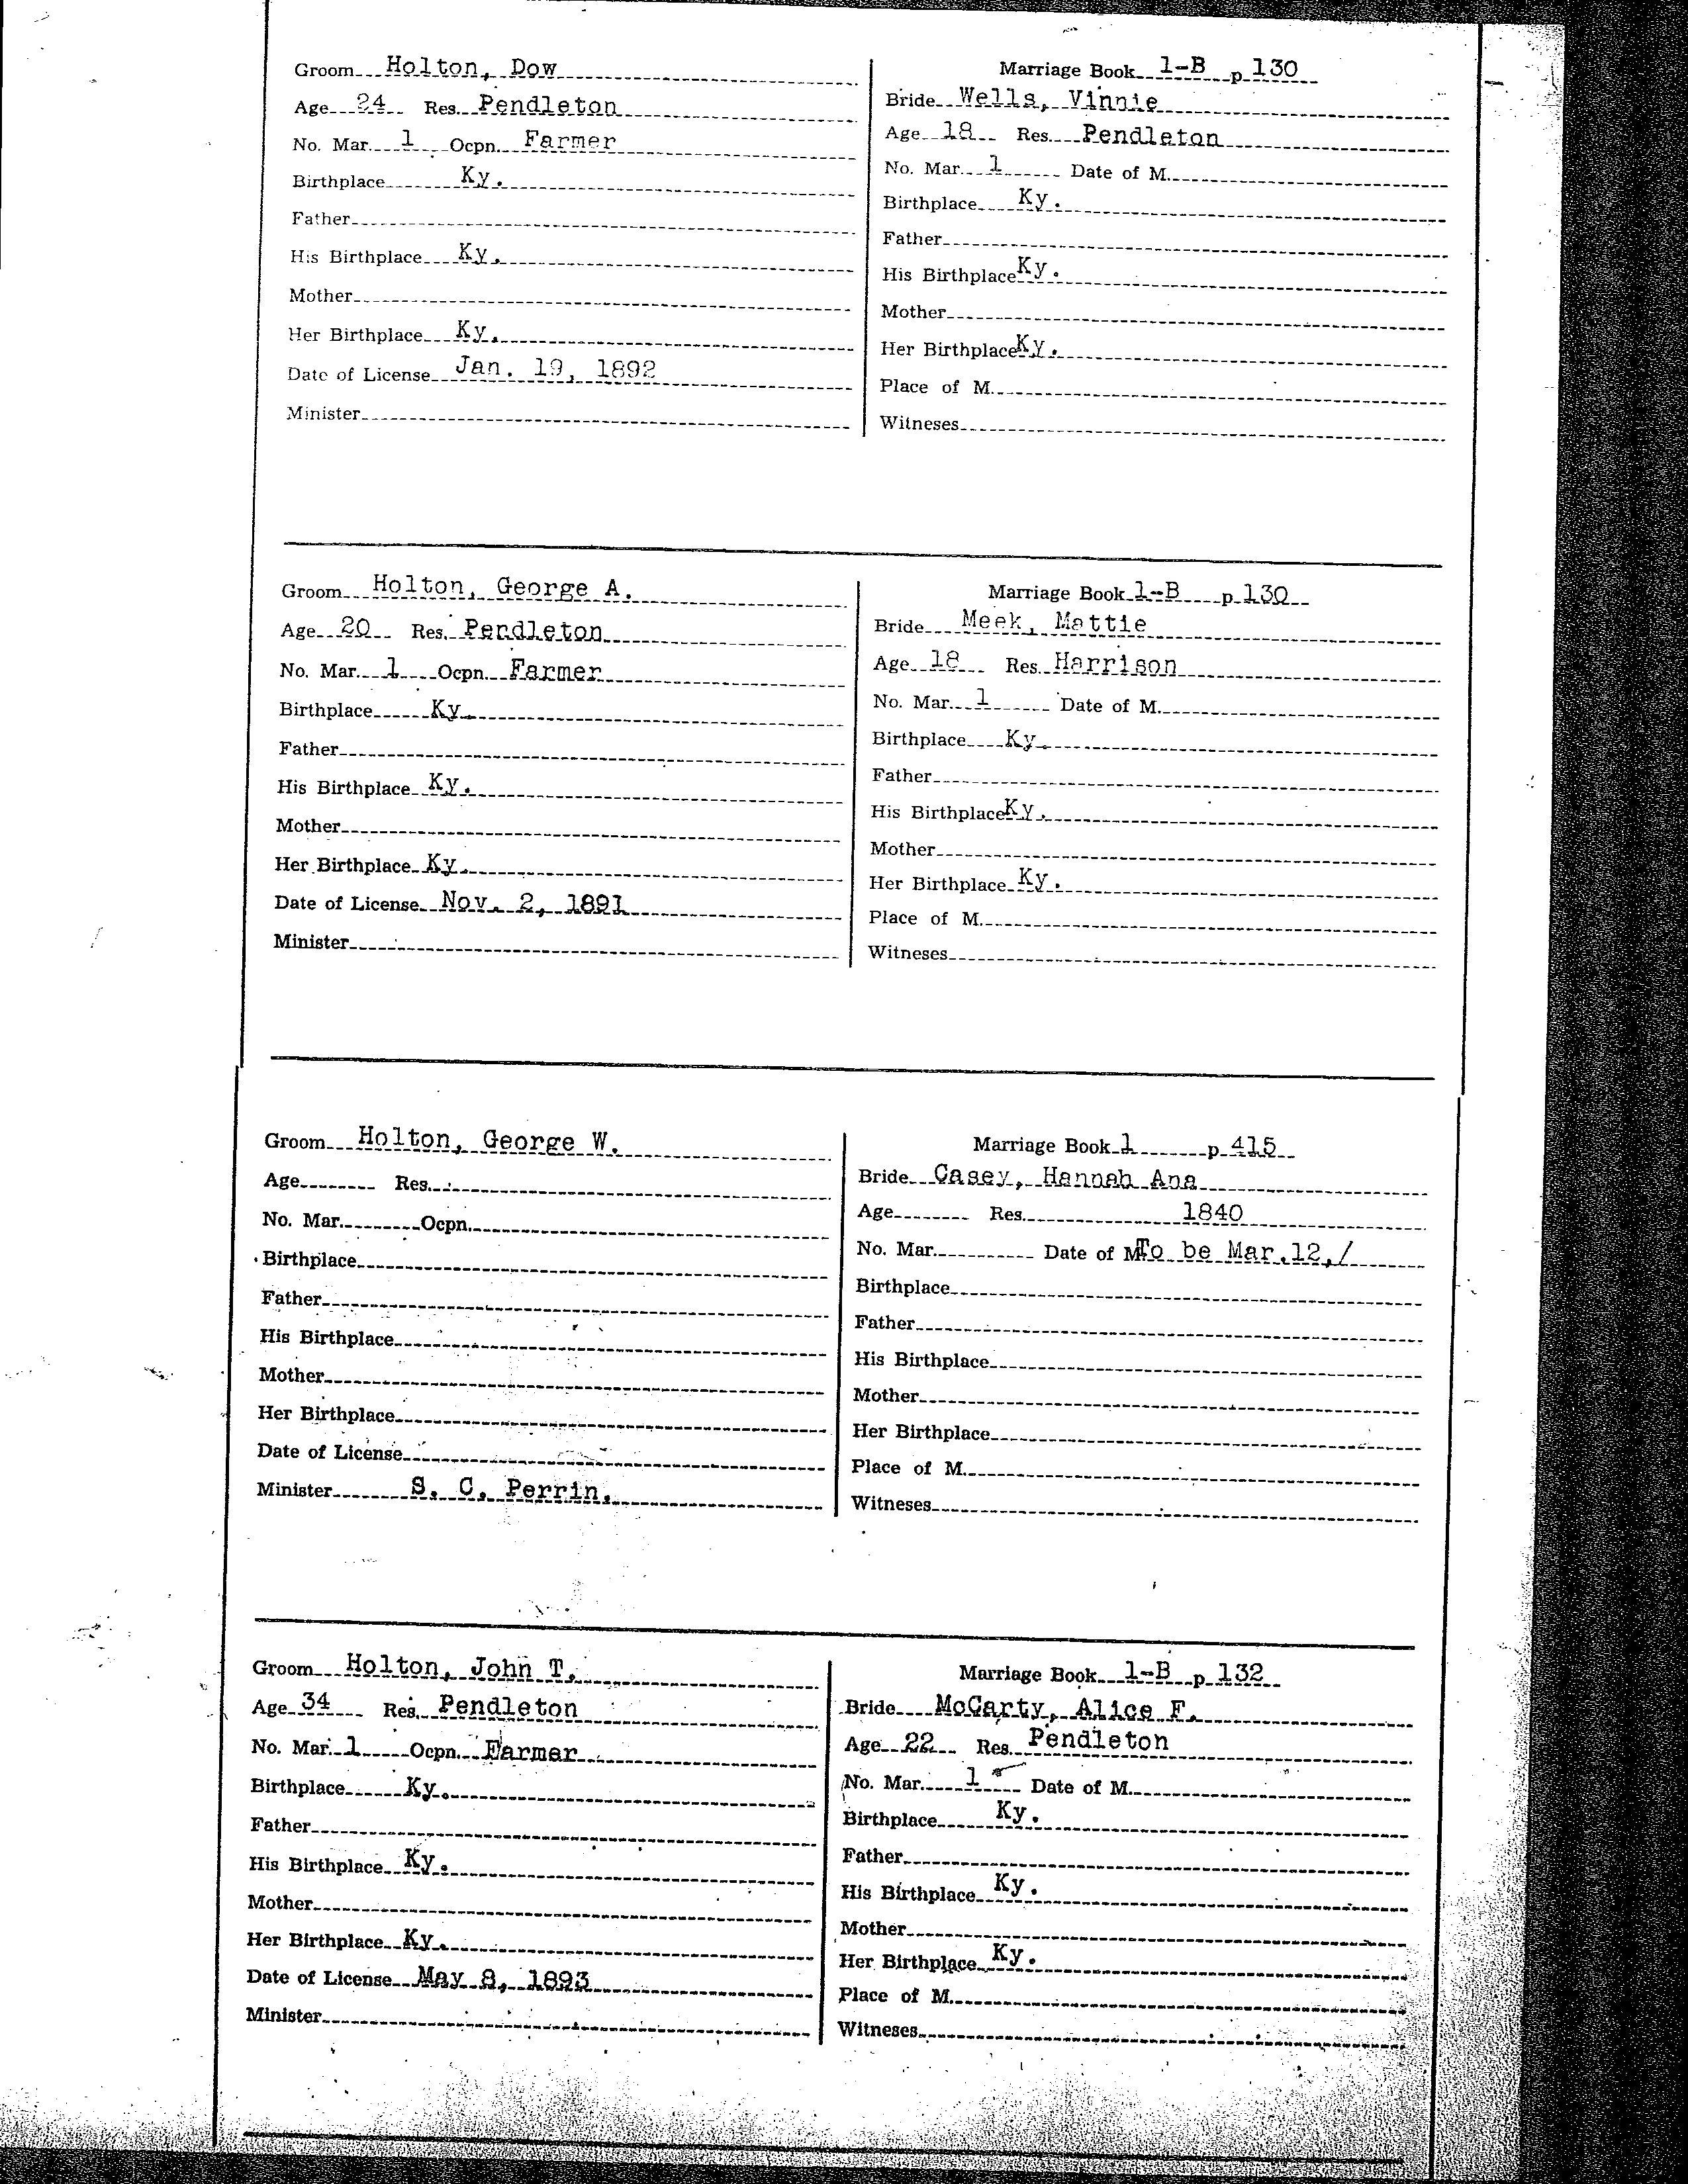 Groom Holton, Dow
Age 24 Res. Pendleton
No. Mar. 1 Ocpn. Farmer
Birthplace Ky.
Father
His Birthplace Ky.
Mother
Her Birthplace Ky.
Date of License Jan. 19, 1892
Minister
Marriage Book 1-B p 130
Bride Wells, Vinnie
Age 18 Res. Pendleton
No. Mar. 1 Date of M.
Birthplace Ky.
Father
His Birthplace Ky.
Mother
Her Birthplace Ky.
Place of M.
Witneses
Groom Holton, George A.
Age 20 Res. Pendleton
No. Mar. 1 Ocpn. Farmer
Birthplace Ky.
Father
His Birthplace Ky.
Mother
Her Birthplace Ky.
Date of License Nov. 2, 1891
Minister
Marriage Book 1-B p 130
Bride Meek, Mattie
Age 18 Res. Harrison
No. Mar. 1 Date of M.
Birthplace Ky.
Father
His Birthplace Ky.
Mother
Her Birthplace Ky.
Place of M.
Witneses
Groom Holton, George W.
Age Res.
No. Mar. Ocpn.
Birthplace
Father
His Birthplace
Mother
Her Birthplace
Date of License
Minister S. C. Perrin.
Marriage Book 1 p 415
Bride Casey, Hannah Ana
Age Res. 1840
No. Mar. Date of M To be Mar.12,/
Birthplace
Father
His Birthplace
Mother
Her Birthplace
Place of M.
Witneses
Groom Holton, John T.
Age 34 Res. Pendleton
No. Mar. 1 Ocpn. Farmer
Birthplace Ky.
Father
His Birthplace Ky.
Mother
Her Birthplace Ky.
Date of License May 8, 1893
Minister
Marriage Book 1-B p 132
Bride McCarty, Alice F.
Age 22 Res. Pendleton
No. Mar. 1 Date of M.
Birthplace Ky.
Father
His Birthplace Ky.
Mother
Her Birthplace Ky.
Place of M.
Witneses